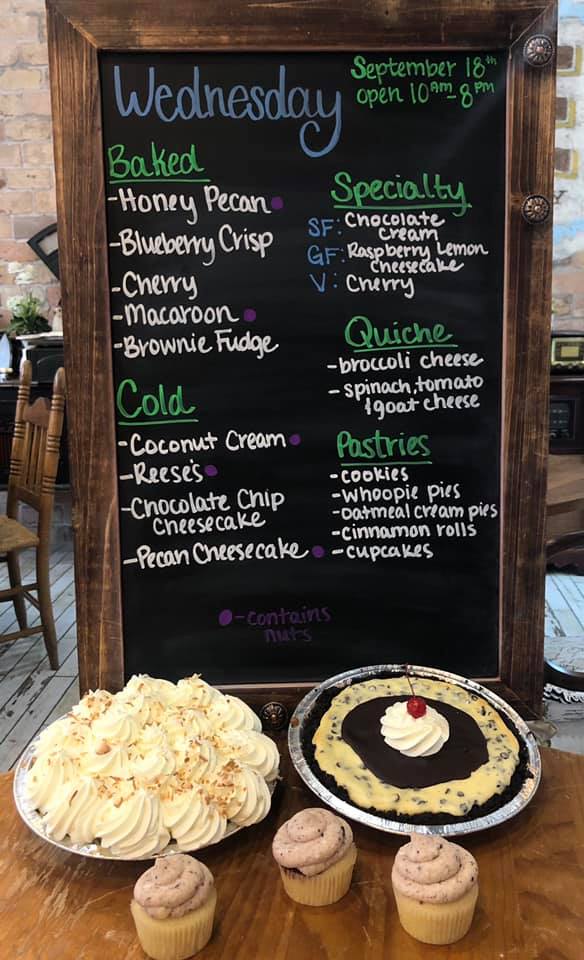 Wednesday
September 18th
open 10AM-8PM
Baked
-Honey Pecan
-Blueberry Crisp
-Cherry
-Macaroon
-Brownie Fudge
Cold
-Coconut Cream
-Reese's
-Chocolate Chip
Cheesecake
-Pecan Cheesecake
Specialty
SF: Chocolate
Cream
GF: Raspberry Lemon
cheesecake
V: Cherry
Quiche
-broccoli cheese
-spinach, tomato
& goat cheese
Pastries
-cookies
-whoopie pies
-oatmeal cream pies
-cinnamon rolls
-cupcakes
-contains
nuts